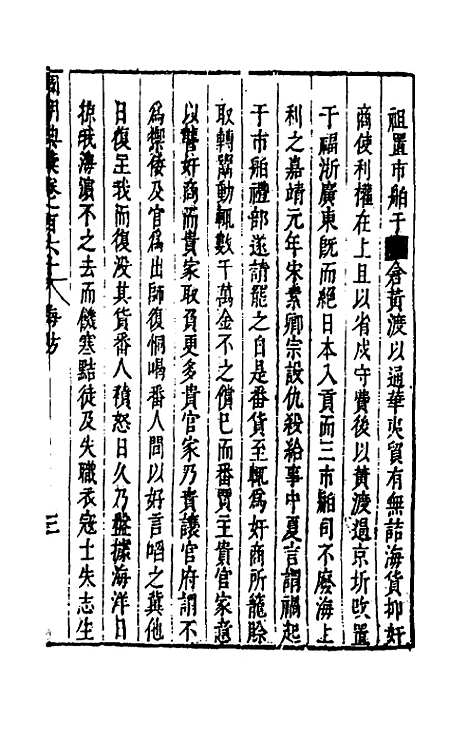 祖置市舶于倉黃渡以通華夷貿有無詰海貨抑奸
商使利權在上且以省戍守費後以黃渡過京圻改置
于福浙廣東旣而絕日本入貢而三市舶司不廢海上
利之嘉靖元年宋素卿宗設仇殺給事中夏言謂禍起
于市舶禮部遂請罷之自是番貨至輒爲奸商所籠賒
取轉鬻動輒數千萬金不之償已而番賈主貴官家意
以讋奸商而貴家取負更多貴官家乃責讓官府謂不
爲禦倭及官爲出師復恫喝番人間以好言啗之冀他
日復至我而復没其貨番人積怒日久乃盤據海洋日
掠我海濵不之去而饑寒黠徒及失職衣冠士失志生
國朝典彙卷之一百六十八 海防 三